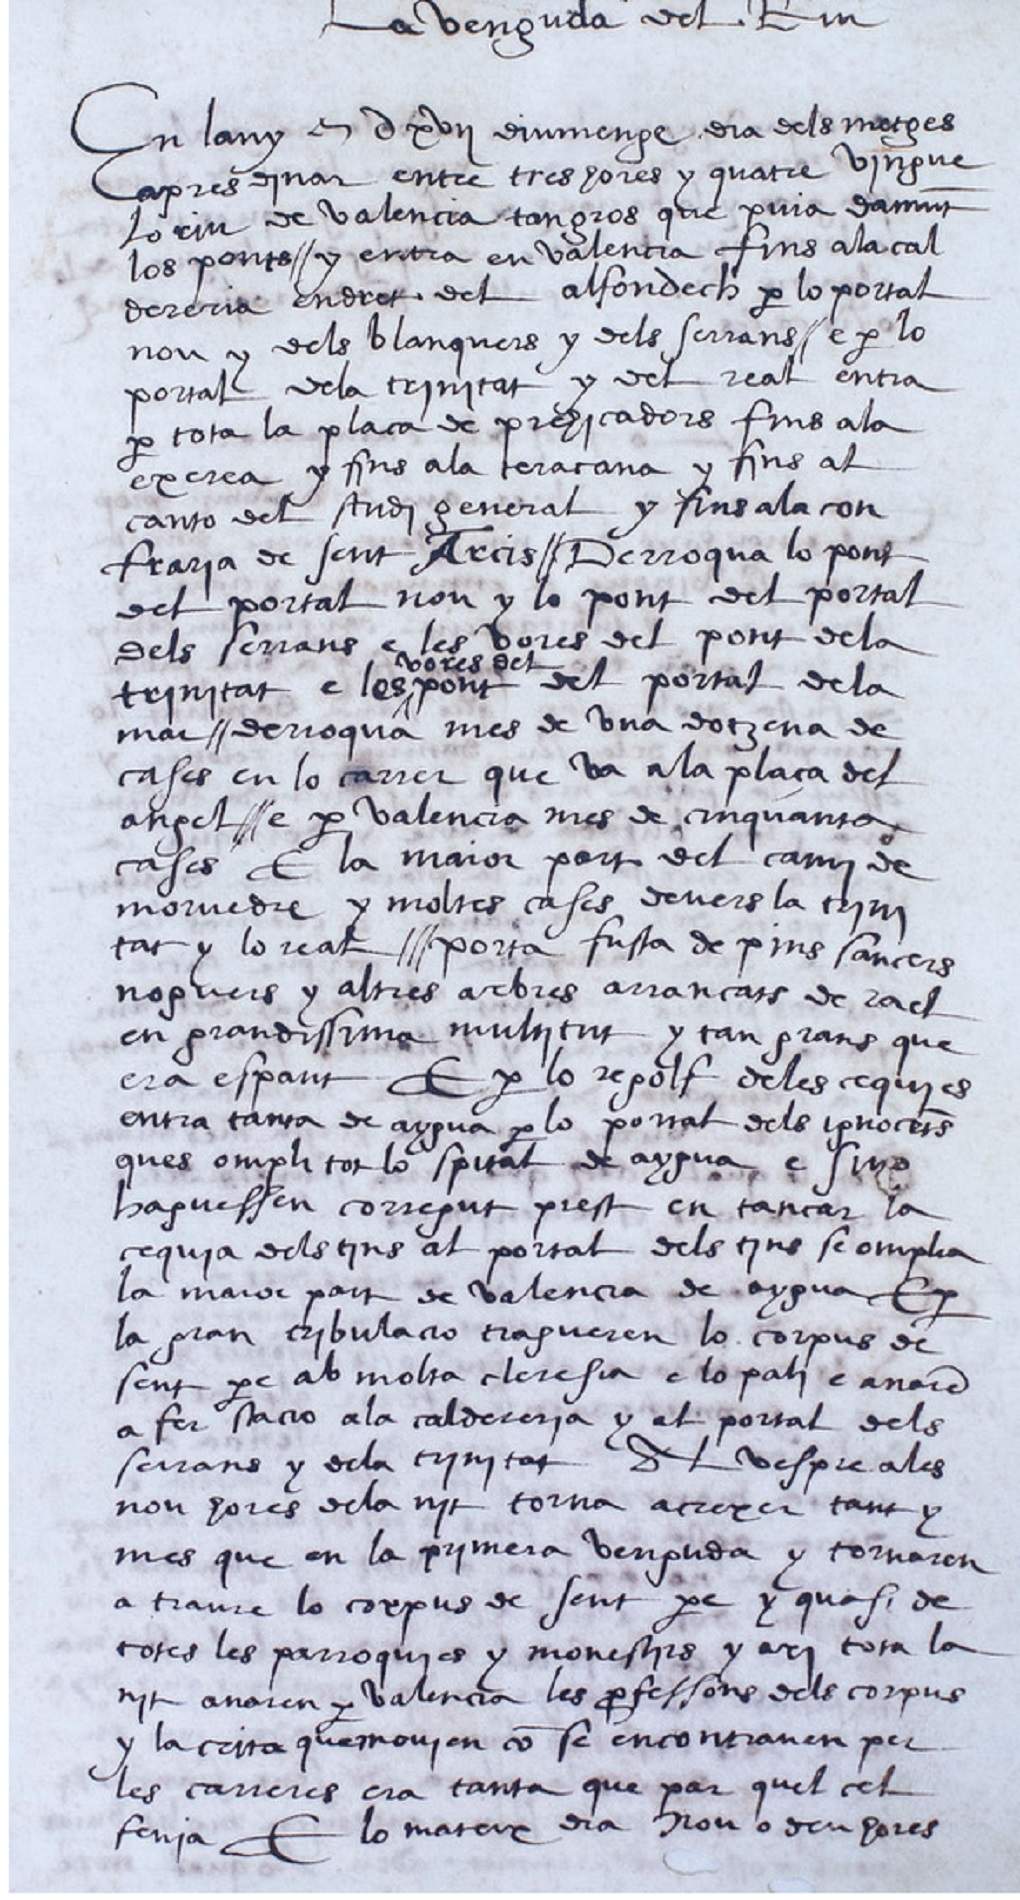 La venguda del Riu
En lany M D xvij diumenge dia dels metges
apres dinar entre tres hores y quatre vingue
lo riu de valencia tangros que puia damūt
los ponts // y entra en valencia fins ala cal
dereria endret del alfondech p lo portal
nou y dels blanquers y dels serrans // e p lo
portal dela trinitat y del real entra
p tota la placa de prehicadors fins ala
exerea y fins ala teracana y fins al
canto del studi general y fins ala con
fraria de sent Arcis // Derroqua lo pont
del portal nou y lo pont del portal
dels serrans e les vores del pont dela
trinitat e les vores del pont del portal dela
mar // derroqua mes de una dotzena de
cases en lo carrer que va ala plaça del
angel // e p valencia mes de cinquanta
cases E la maior part del cami de
moruedre y moltes cases devers la trini
tat y lo real /// porta fusta de pins sancers
noguers y altres arbres arrancats de rael
en grandissima multitut y tan grans que
era espant E p lo regolf deles cequies
entra tanta de aygua p lo portal dels ignocēts
ques ompli tot lo spital de aygua e sino
haguessen corregut prest en tancar la
cequia dels tins al portal dels tins se omplia
la maior part de valencia de aygua E p
la gran tribulacio tragueren lo corpus de
sent pe ab molta cleresia e lo pali e anarē
a fer stacio ala caldereria y al portal dels
serrans y dela trinitat Al vespre ales
nou hores dela nit torna acrexer tant y
mes que en la primera venguda y tornaren
a traure lo corpus de sent pe y quasi de
totes les parroquies y monestirs y axi tota la
nit anaren p valencia les pfessons dels corpus
y la crita que mouien cō se encontrauen per
les carreres era tanta que par quel cel
fenia E lo mateix dia nou o deu hores